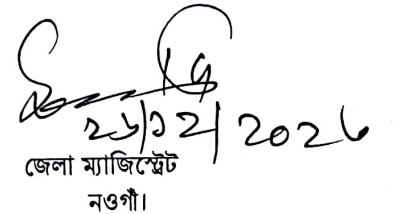 ২৬/১২/২০২৬
জেলা ম্যাজিস্ট্রেট
নওগাঁ।